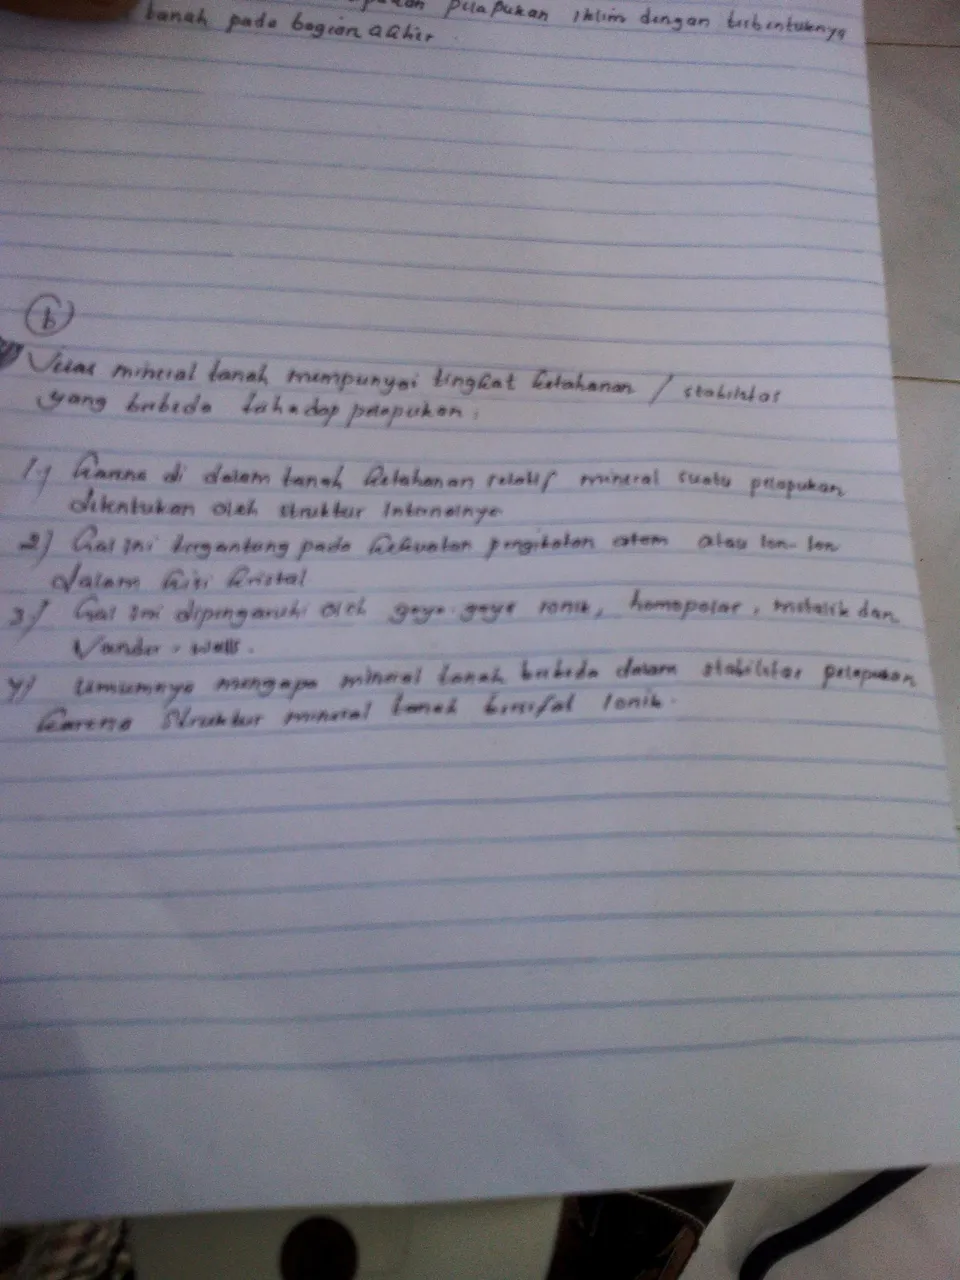 pelapukan iklim dengan terbentuknya
tanah pada bagian akhir.
b
mineral tanah mempunyai tingkat ketahanan / stabilitas
yang berbeda terhadap pelapukan:
1.) Karena di dalam tanah ketahanan relatif mineral suatu pelapukan
ditentukan oleh struktur Internalnya
2) Hal ini tergantung pada kekuatan pengikatan atom atau Ion-Ion
dalam kisi kristal
3) Hal ini dipengaruhi oleh gaya-gaya ionik, homopolar, metalik dan
Vander-walls.
4) Umumnya mengapa mineral tanah berbeda dalam stabilitas pelapukan
karena Struktur mineral tanah bersifat Ionik.